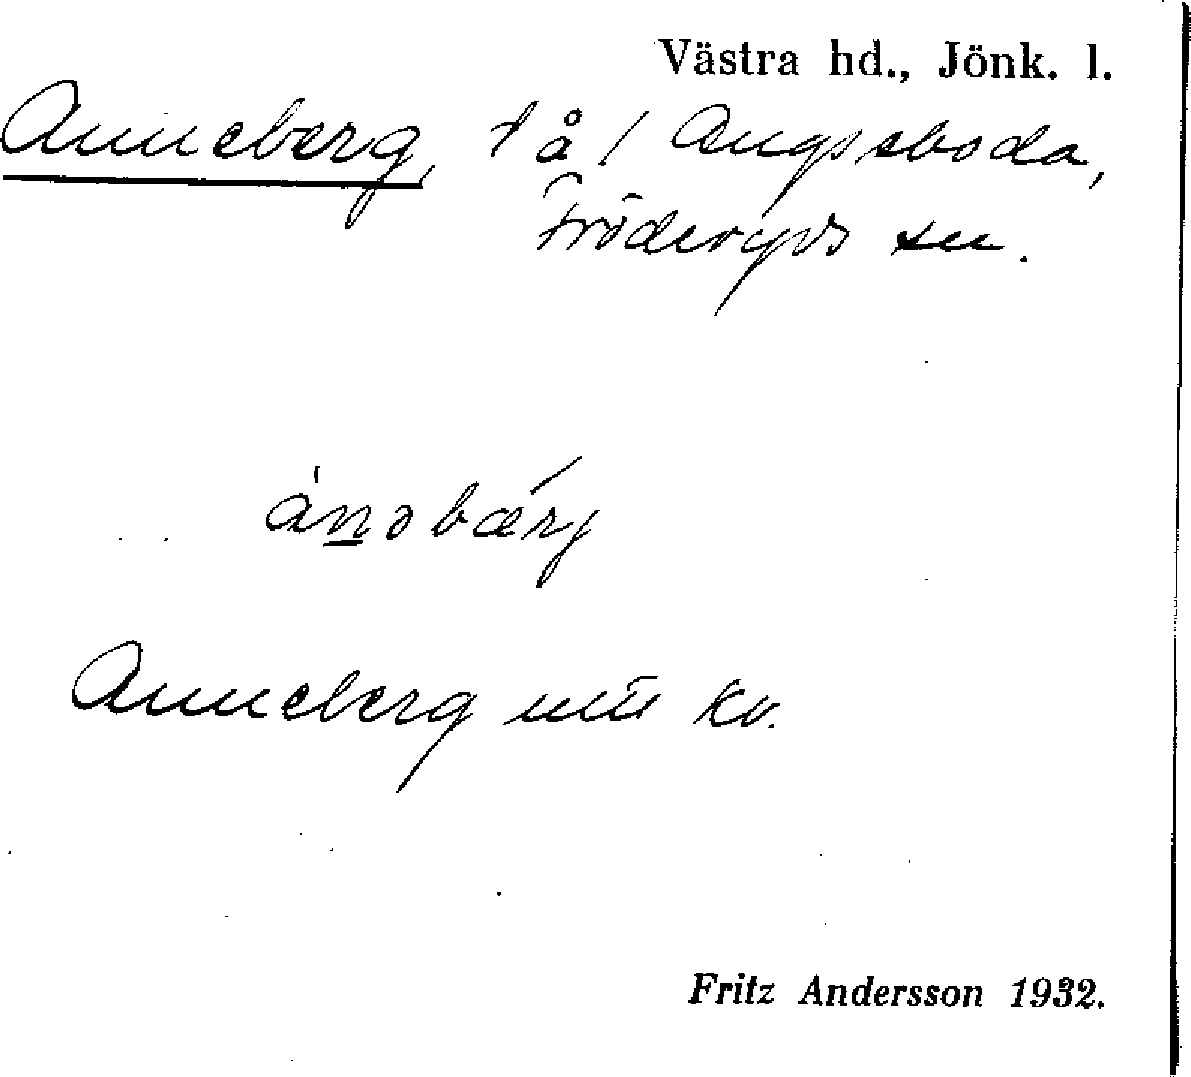 Västra hd., Jönk. l.
Anneberg, t å / Ängsboda,
Fröderyds sn.
Anneberg mtl kv.
Fritz Andersson 1932.